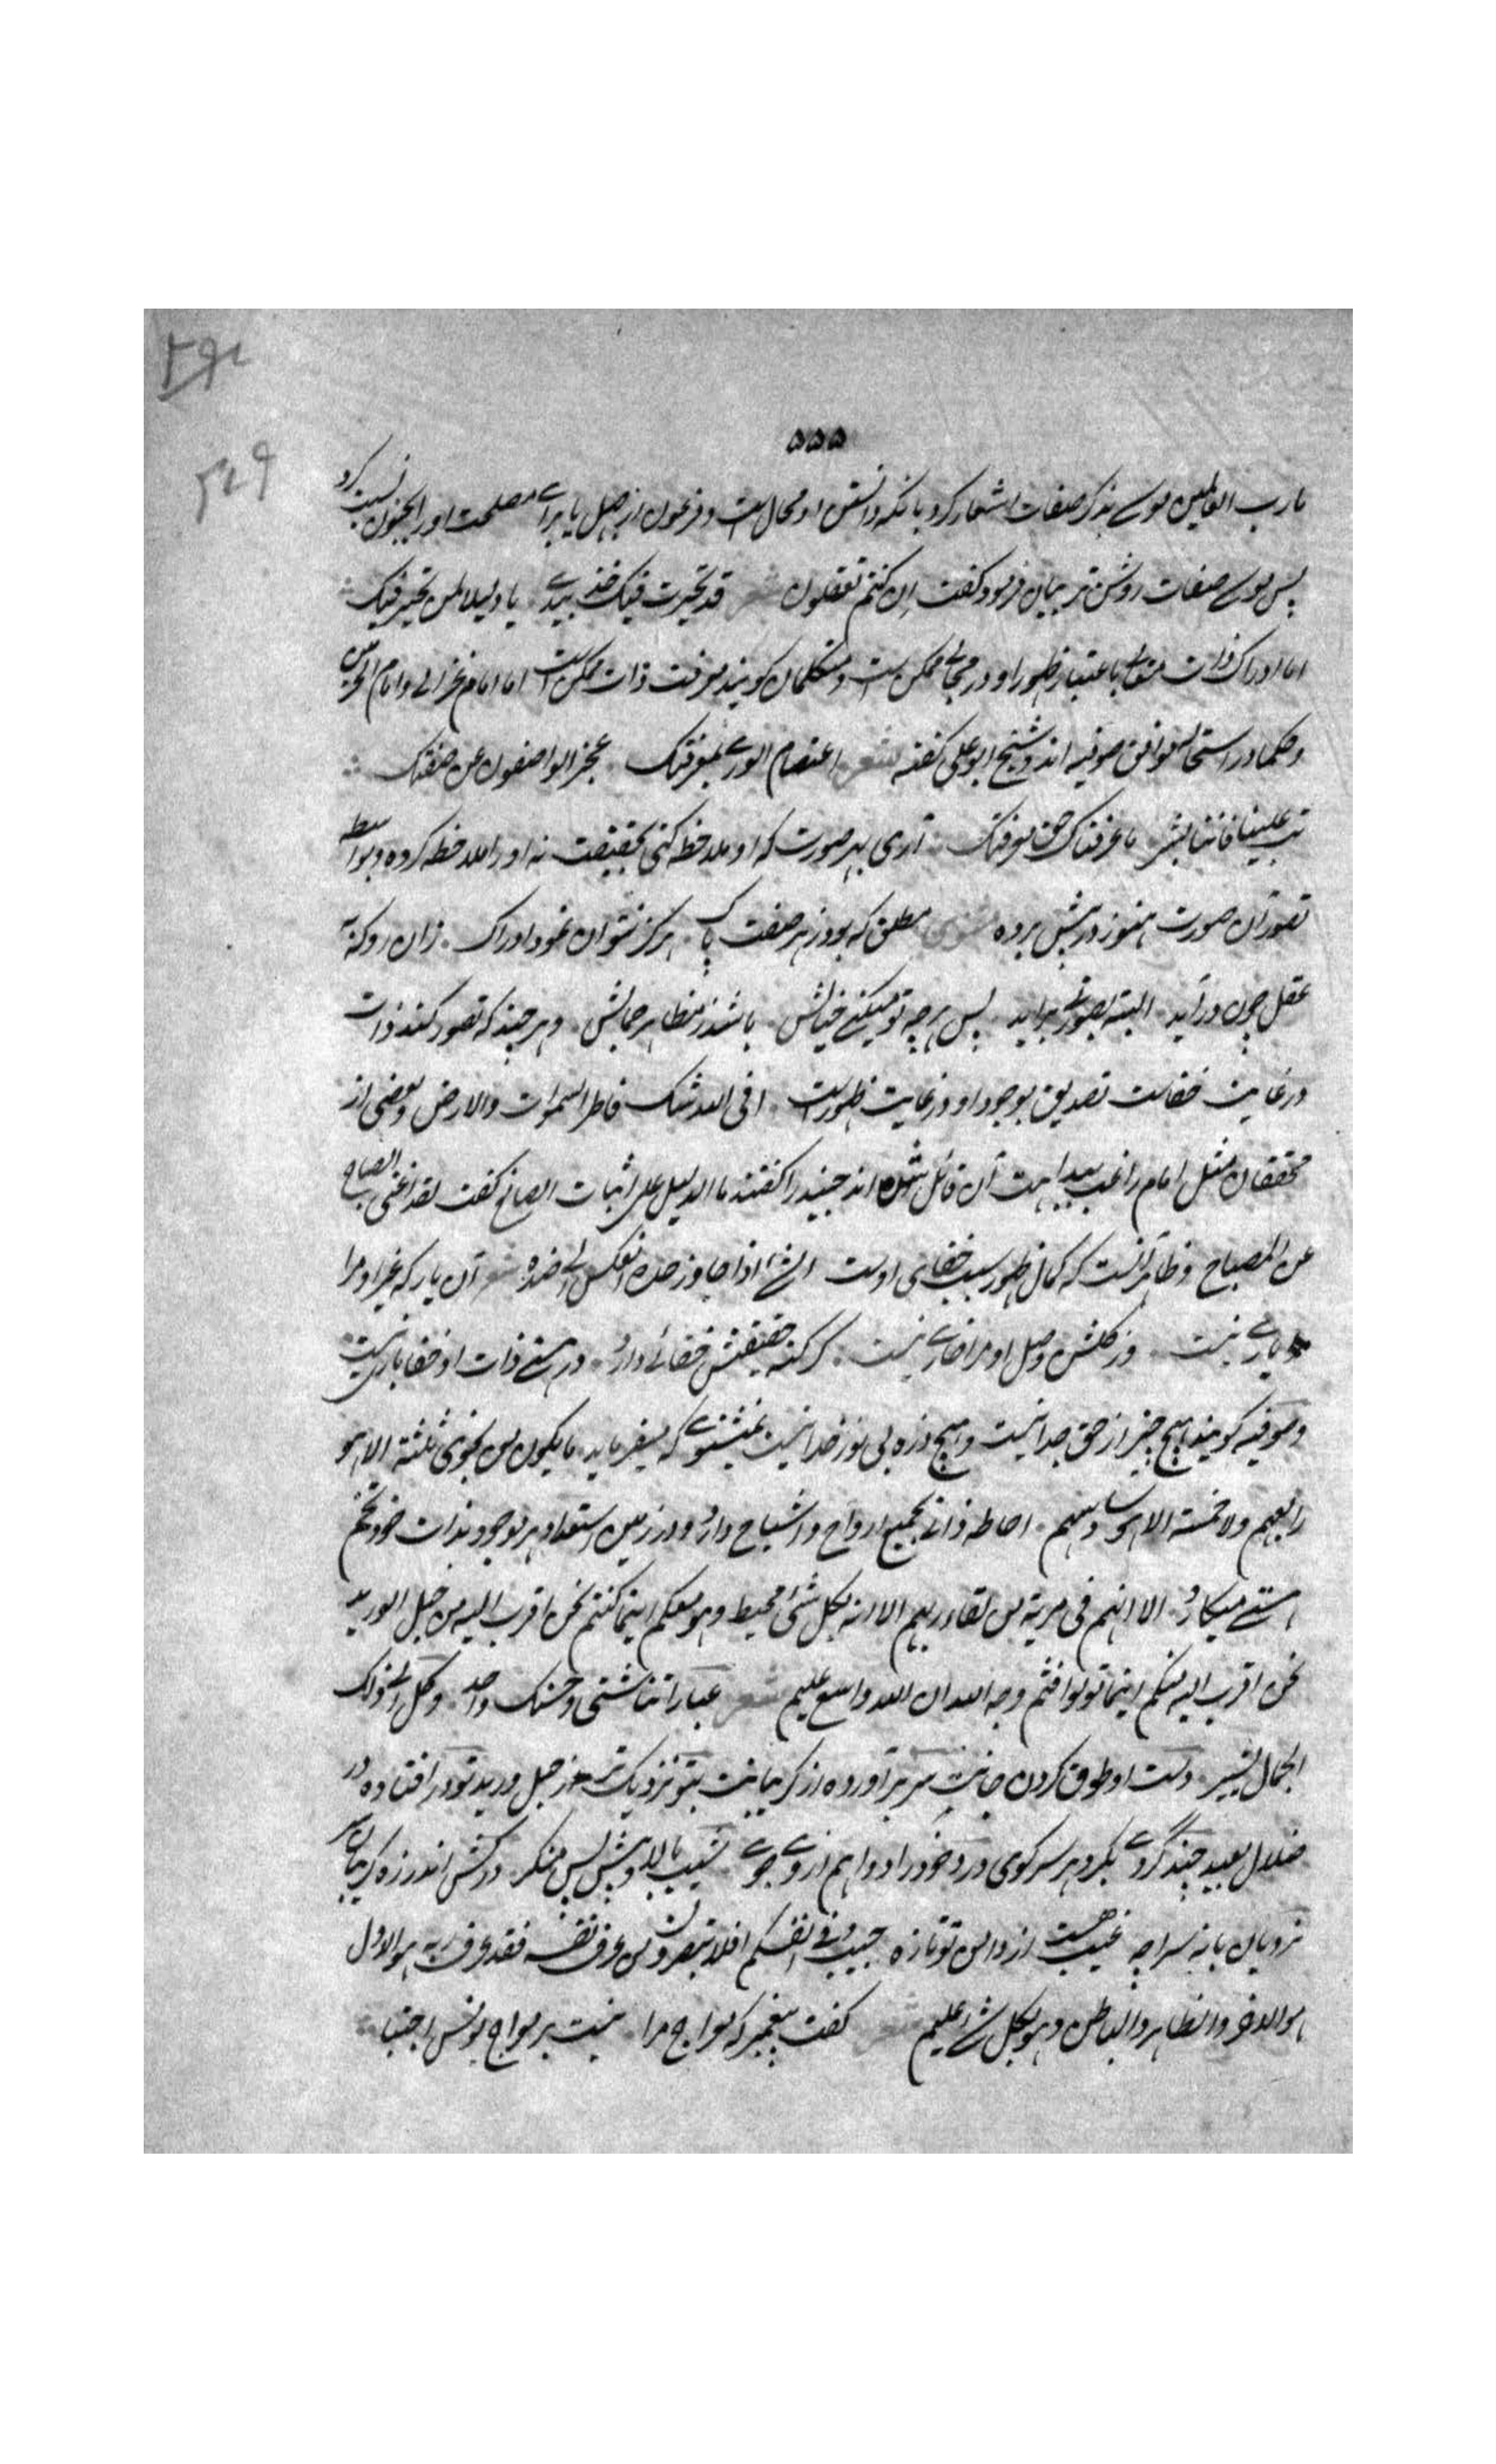 ۵۵۵
ما رب العالمین موسے بذکر صفات اشعار کرد بانکه دانستن او محال است و فرعون از جهل یا براے مصلحت او را بجنون نسبت کرد
پس موسے صفات روشن تر بیان فرمود و گفت ان کنتم تعقلون شعر قد تحیرت فیک خذ بیدے یا دلیلا لمن تحیر فیک
اما ادراک ذات متعالی باعتبار ظهور او در مجالی ممکن است و متکلمان گویند معرفت ذات ممکن است اما امام غزالی و امام الحرمین
و حکما در استحاله موافق صوفیه اند و شیخ ابو علی گفته شعر اعتصام الورے بمعرفتک عجز الواصفون عن صفتک
تب علینا فاننا بشر ما عرفناک حق معرفتک آری بهر صورت که او ملاحظه کنی بحقیقت نه او را ملاحظه کرده و بواسطه
تصور آن صورت هنوز در پیش پرده مثنوی مطلق که بود ز هر صفت پاک هرگز نتوان نمود ادراک زان رو که به
عقل چون درآید البته بصورتے برآید پس هرچه تو میکنے خیالش باشد ز مظاهر جمالش و هر چند که تصور کنه ذات
در غایت خفاست تصدیق بوجود او در غایت ظهور است افی الله شک فاطر السموات والارض و بعضی از
محققان مثل امام راغب ببداهت آن قائل شده اند جنید را گفتند ما الدلیل علی اثبات الصانع گفت لقد اغنی الصباح
عن المصباح و ظاهر آنست که کمال ظهور سبب خفای اوست الشئ اذا جاوز حده انعکس الی ضده شعر آن یار که غیر او مرا
یارے نیست وز گلشن وصل او مرا خارے نیست گر کنه حقیقتش خفائے دارد در هستے ذات او خفا بارے نیست
و صوفیه گویند هیچ چیز از حق جدا نیست و هیچ ذره بی نور خدا نیست نمیشنوے که میفرماید ما یکون من نجوی ثلثة الا هو
رابعهم ولا خمسة الا هو سادسهم احاطه ذاتے بجمیع ارواح و اشباح دارد و در زمین استعداد هر موجود بذات خود تخم
هستے میکارد الا انهم فی مریة من لقاء ربهم الا انه بکل شئ محیط وهو معکم اینما کنتم نحن اقرب الیه من حبل الورید
نحن اقرب الیه منکم اینما تولوا فثم وجه الله ان الله واسع علیم شعر عباراتنا شتی و حسنک واحد وکل الی ذاک
الجمال یشیر دست او طوق گردن جانت سر برآورده از گریبانت بتو نزدیک تر ز حبل ورید تو در افتاده در
ضلال بعید چند گردے بگرد هر سر کوی درد خود را دوا هم از وے جوے نشیب بالا و پیش پس منگر در کش اندر زه گریبان سر
نردبان پایه سراچه غیب هست از دامن تو تا زه جیب و فی انفسکم افلا تبصرون من عرف نفسه فقد عرف ربه هو الاول
هو الاخر والظاهر والباطن وهو بکل شئ علیم شعر گفت پیغمبر که معراج مرا نیست بر معراج یونس اجتبا